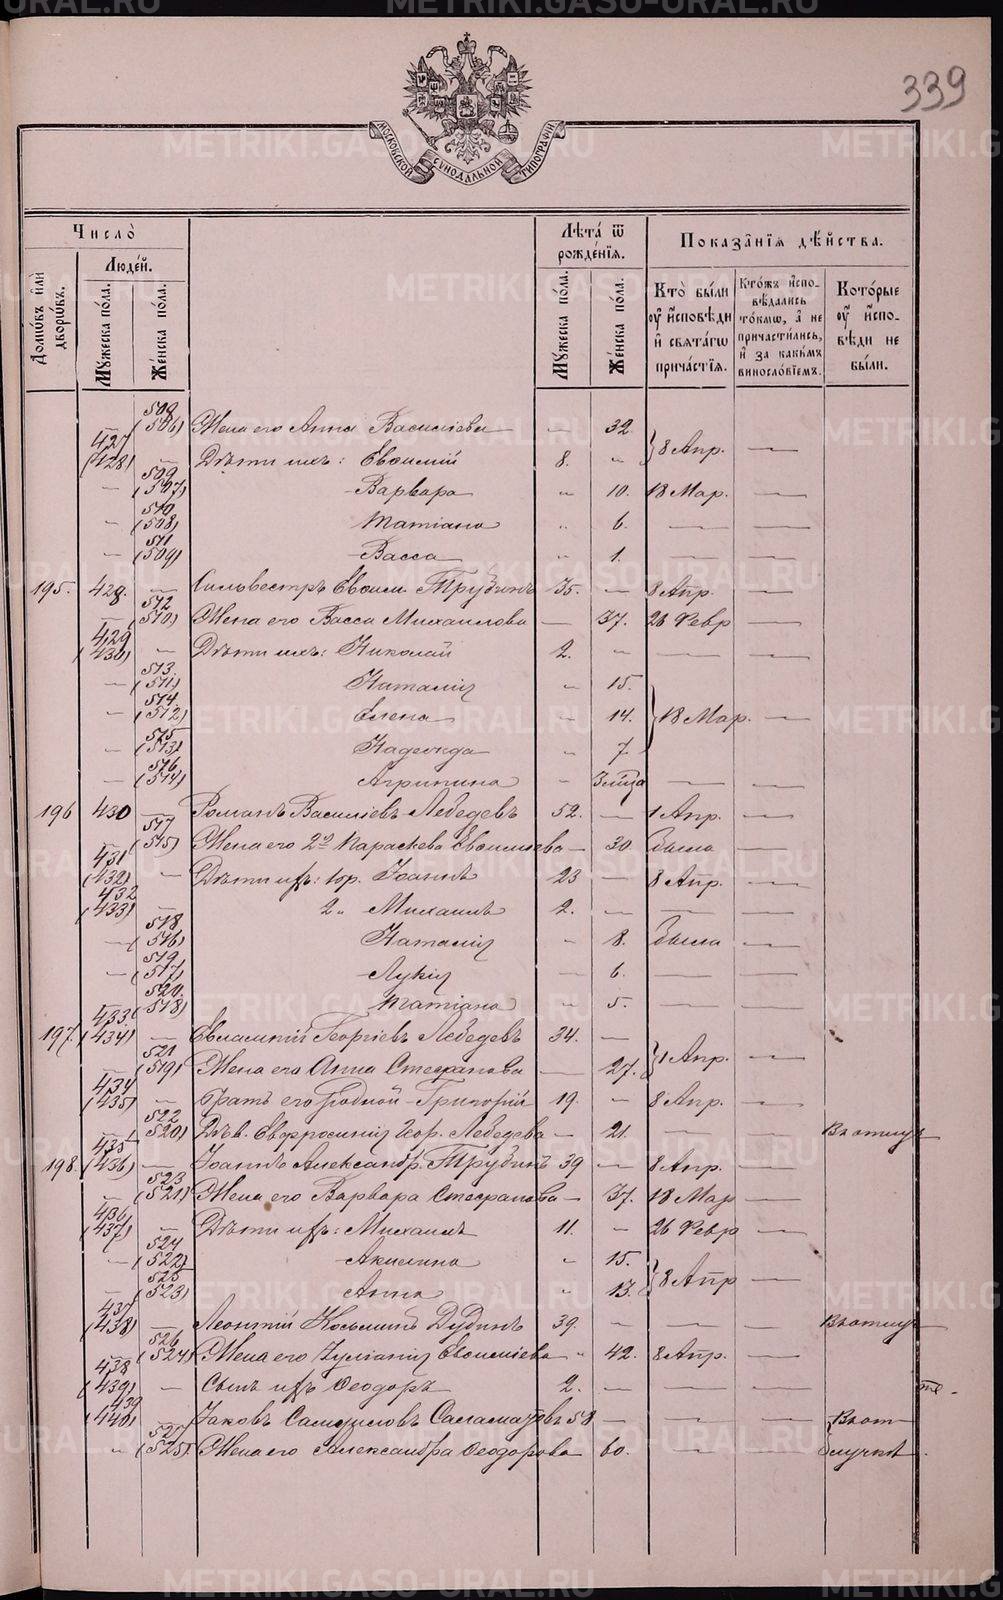 339
МОСКОВСКОЙ СУНОДАЛЬНОЙ ТИПОГРАФІИ
Число̀
Людей.
Домѡвъ или дворѡвъ.
Мꙋжеска пола.
Женска пола.
Лѣта ѿ рожденїѧ.
Мꙋжеска пола.
Женска пола.
Показанїѧ дѣйства.
Кто были ᲂу҆ исповѣди и свѧтагѡ причастїѧ.
Ктожъ исповѣдались токмѡ, а не причастились, и за какимъ винословїемъ.
Которые ᲂу҆ исповѣди не были.
508 (506) Жена его Анна Василіева — 32.
427 (428) — Дѣти ихъ: Евѳимій 8. „ } 8 Апр. —
— 509 (507) Варвара „ 10. 18 Мар. —
„ 510 (508) Татіана „ 6. — —
— 511 (509) Васса „ 1. — —
195. 428. — Сильвестръ Евѳим. Трубинъ 35. — 8 Апр. —
512 (510) Жена его Васса Михаилова — 37. 26 Февр —
429 (430) — Дѣти ихъ: Николай 2. „ — —
— 513. (511) Наталія „ 15.
— 514. (512) Елена „ 14. } 18 Мар. —
„ 515 (513) Надежда „ 7.
— 516 (514) Агрипина „ —  —
196 430 — Романъ Василіевъ Лебедевъ 52. — 1 Апр. —
517 (515) Жена его 2ая Параскева Евѳиміева — 30 была —
431 (432) — Дѣти ихъ: 1ор. Іоаннъ 23 — 8 Апр. —
432 (433) — 2„ Михаилъ 2. — — —
— 518 (516) Наталія „ 8. была —
— 519 (517) Лукія — 6. — —
520. (518) Татіана „ 5. — —
197. 433. (434) — Евлампій Георгіевъ Лебедевъ 34. —
521 (519) Жена его Анна Стефанова — 27. } 1 Апр. —
434 (435) — Братъ его родной Григорій 19. — 8 Апр. —
— 522 (520) Дѣв. Евфросинія Геор. Лебедева — 21. — — Въ отлуч
198. 435 (436) — Іоаннъ Александр. Трубинъ 39 — 8 Апр. —
— 523 (521) Жена его Варвара Стефанова — 37. 18 Мар —
436 (437) — Дѣти ихъ: Михаилъ 11. — 26 Февр —
— 524 (522) Акилина „ 15.
— 525 (523) Анна „ 13. } 8 Апр —
437 (438) — Леонтій Козьминъ Дудинъ 39. — — — Въ отлуч
526 (524) Жена его Іуліанія Евѳиміева „ 42. 8 Апр. —
438 (439) — Сынъ ихъ Ѳеодоръ 2. — — —
439 (440) — Іаковъ Самуиловъ Саламатовъ 58 — — — Въ от
„ 527 (525) Жена его Александра Ѳеодорова 60. — — лучкѣ